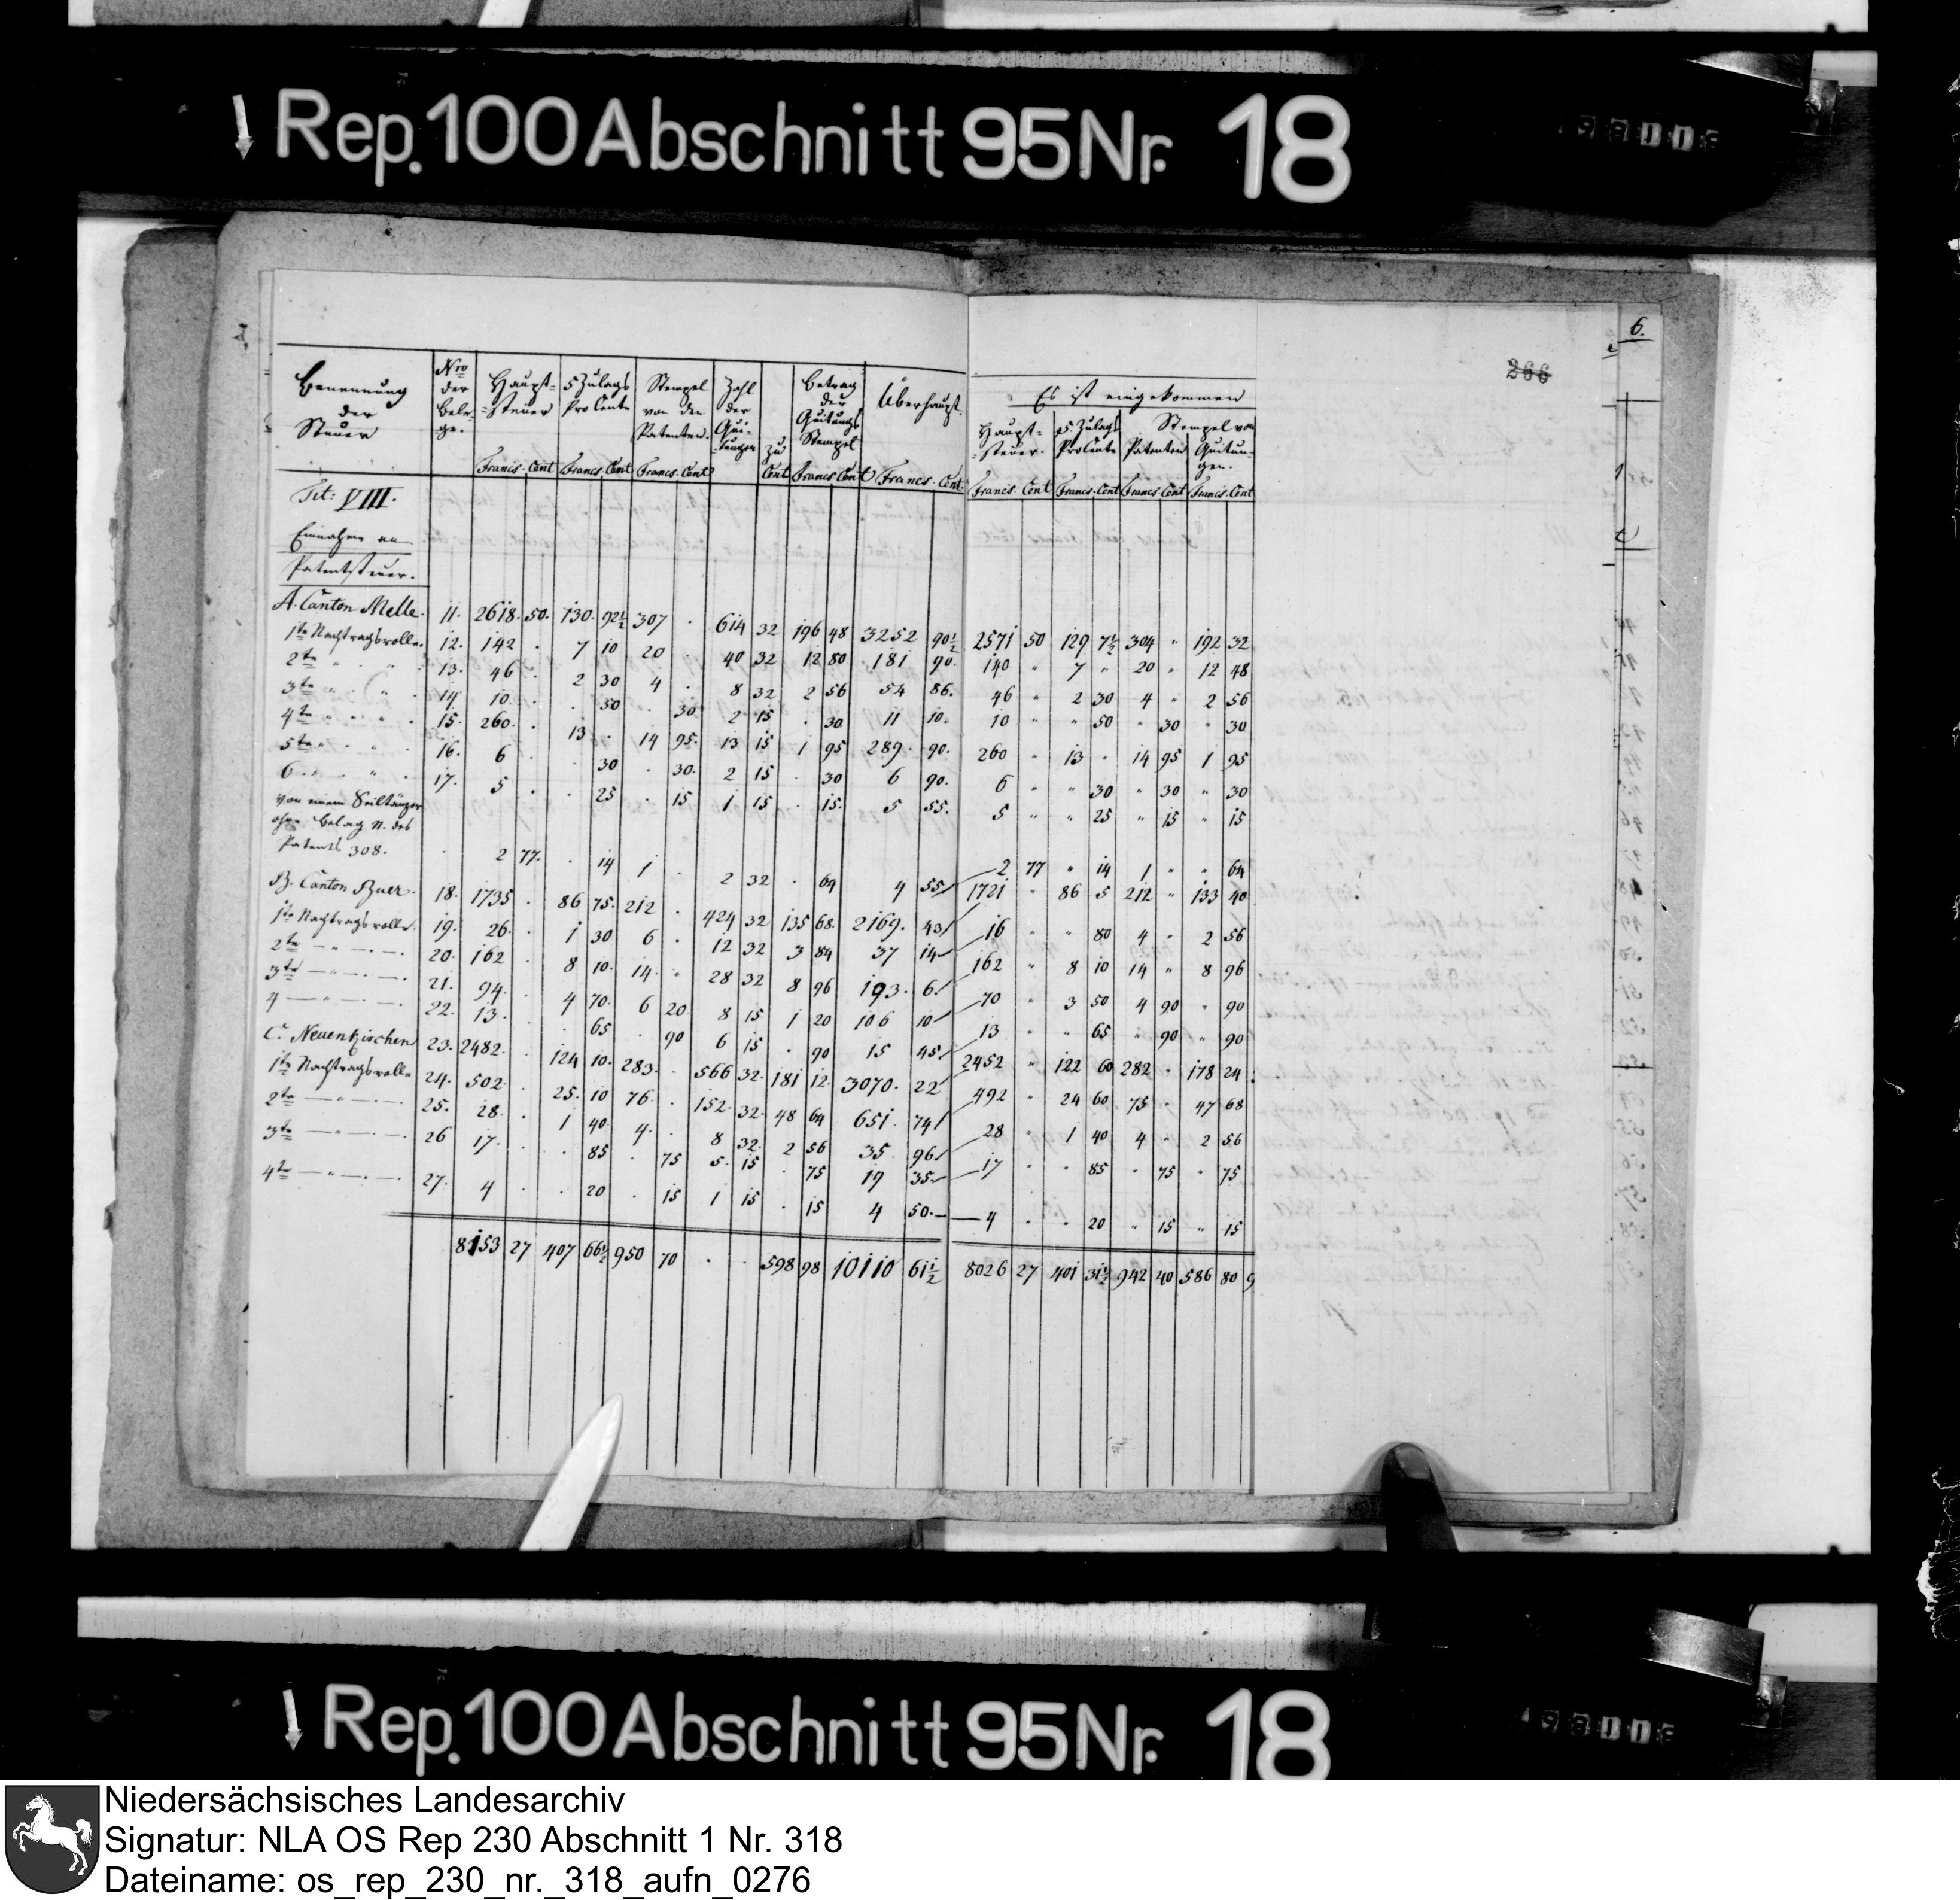 Rep. 100 Abschnitt 95 Nr. 18
6.
266
Benennung der Steuer | Nro der Bele-ge. | Haupt-steuer | 5 Zulags Pro Cente | Stempel von den Patenten. | Zahl der Quitungen | zu | Betrag der Quitungs Stempel | Überhaupt. | Es ist eingekommen
Haupt-steuer. | 5 Zulags Pro Cente | Stempel von Patenten | Quitungen.
Francs. Cent | Francs. Cent | Francs. Cent | Cent | Francs Cent | Francs. Cent. | Francs Cent | Francs. Cent | Francs Cent | Francs. Cent
Tit: VIII.
Einnahme an
Patentsteuer.
A. Canton Melle. 11. 2618. 50. 130. 92½ 307 . 614 32 196 48 3252 90½ 2571 50 129 7½ 304 " 192 32
1te Nachtragsrolle. 12. 142 . 7 10 20 40 32 12 80 181 90. 140 " 7 " 20 " 12 48
2te " " 13. 46 . 2 30 4 . 8 32 2 56 54 86. 46 " 2 30 4 " 2 56
3te " " 14. 10. . . 50 . 30 2 15 . 30 11 10. 10 " " 50 " 30 " 30
4te " " 15. 260. . 13 . 14 95. 13 15 1 95 289. 90. 260 " 13 " 14 95 1 95
5te " " 16. 6 . . 30 . 30. 2 15 . 30 6 90. 6 " " 30 " 30 " 30
6 " " 17. 5 . . 25 . 15 1 15 . 15. 5 55. 5 " " 25 " 15 " 15
von einem Seiltänzer
ohne Belag N. des
Patents 308. . 2 77. . 14 1 . 2 32 . 64 4 55 2 77 " 14 1 " " 64
B. Canton Buer. 18. 1735 . 86 75. 212 . 424 32 135 68. 2169. 43 1721 " 86 5 212 " 133 40
1te Nachtragsrolle. 19. 26. . 1 30 6 . 12 32 3 84 37 14 16 " " 80 4 " 2 56
2te — " — 20. 162 . 8 10. 14. " 28 32 8 96 193. 6. 162 " 8 10 14 " 8 96
3te — " — 21. 94. . 4 70. 6 20 8 15 1 20 106 10 70 " 3 50 4 90 " 90
4 — " — 22. 13. . . 65 90 6 15 . 90 15 45 13 " " 65 " 90 " 90
C. Neuenkirchen 23. 2482. . 124 10. 283. . 566 32. 181 12. 3070. 22 2452 " 122 60 282 " 178 24
1te Nachtragsrolle 24. 502. . 25. 10 76. . 152. 32. 48 64 651. 74 492 " 24 60 75 " 47 68
2te — " — 25. 28. . 1 40. 4. . 8 32. 2 56 35. 96 28 " 1 40 4 " 2 56
3te — " — 26 17. . . 85 . 75 5. 15 . 75 19 35 17 " " 85 " 75 " 75
4te — " — 27. 4 . . 20 . 15 1 15 . 15 4 50. 4 . . 20 " 15 " 15
8153 27 407 66½ 950 70 . . 598 98 10110 61½ 8026 27 401 31½ 942 40 586 80
Rep. 100 Abschnitt 95 Nr. 18
Niedersächsisches Landesarchiv
Signatur: NLA OS Rep 230 Abschnitt 1 Nr. 318
Dateiname: os_rep_230_nr._318_aufn_0276